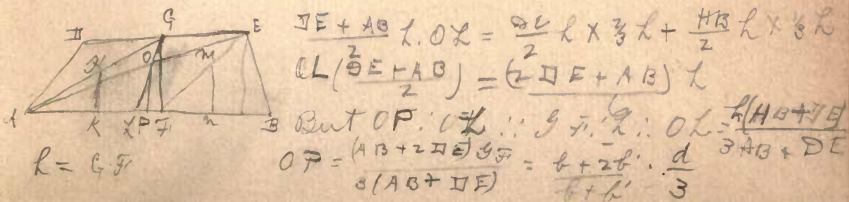 D G E
H O M
A K L P F n B
h = G.F
DE + AB / 2 h. OL = DE / 2 h × 2/3 h + AB / 2 h × 1/3 h
OL (DE + AB / 2) = (2 DE + AB) h / 6
But OP : OL :: GF : h :: OL = h (AB + 2DE) / 3 AB + DE
OP = (AB + 2 DE) GF / 3 (AB + DE) = b + 2b' / b + b' · d / 3